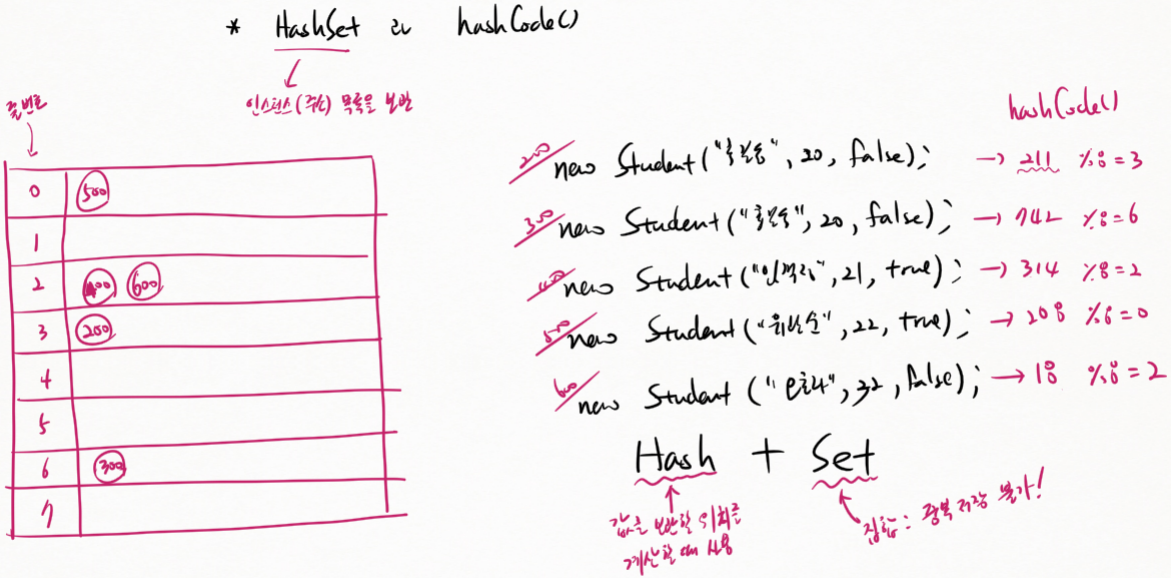 * HashSet 과 hashCode()
인스턴스(주소) 목록을 보관
줄번호
hashCode()
0 500
1
2 400 600
3 200
4
5
6 300
7
200 new Student("홍길동", 20, false); → 211 %8=3
300 new Student("홍길동", 20, false); → 742 %8=6
400 new Student("임꺽정", 21, true); → 314 %8=2
500 new Student("유관순", 22, true); → 208 %8=0
600 new Student(" ", 32, false); → 18 %8=2
Hash + Set
값을 보관할 위치를
계산할 때 사용
집합: 중복 저장 불가!